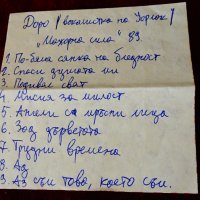 Доро / вокалистка по Уорлок /
"Махорна сила" 89.
1. По-бяла сянка на бледност
2. Спаси душата ми
3. Подивял свят
4. Мисия за милост
5. Ангели са мръсни лица
6. Зад дърветата
7. Трудни времена
8. Аз
9. Аз съм това, което съм.